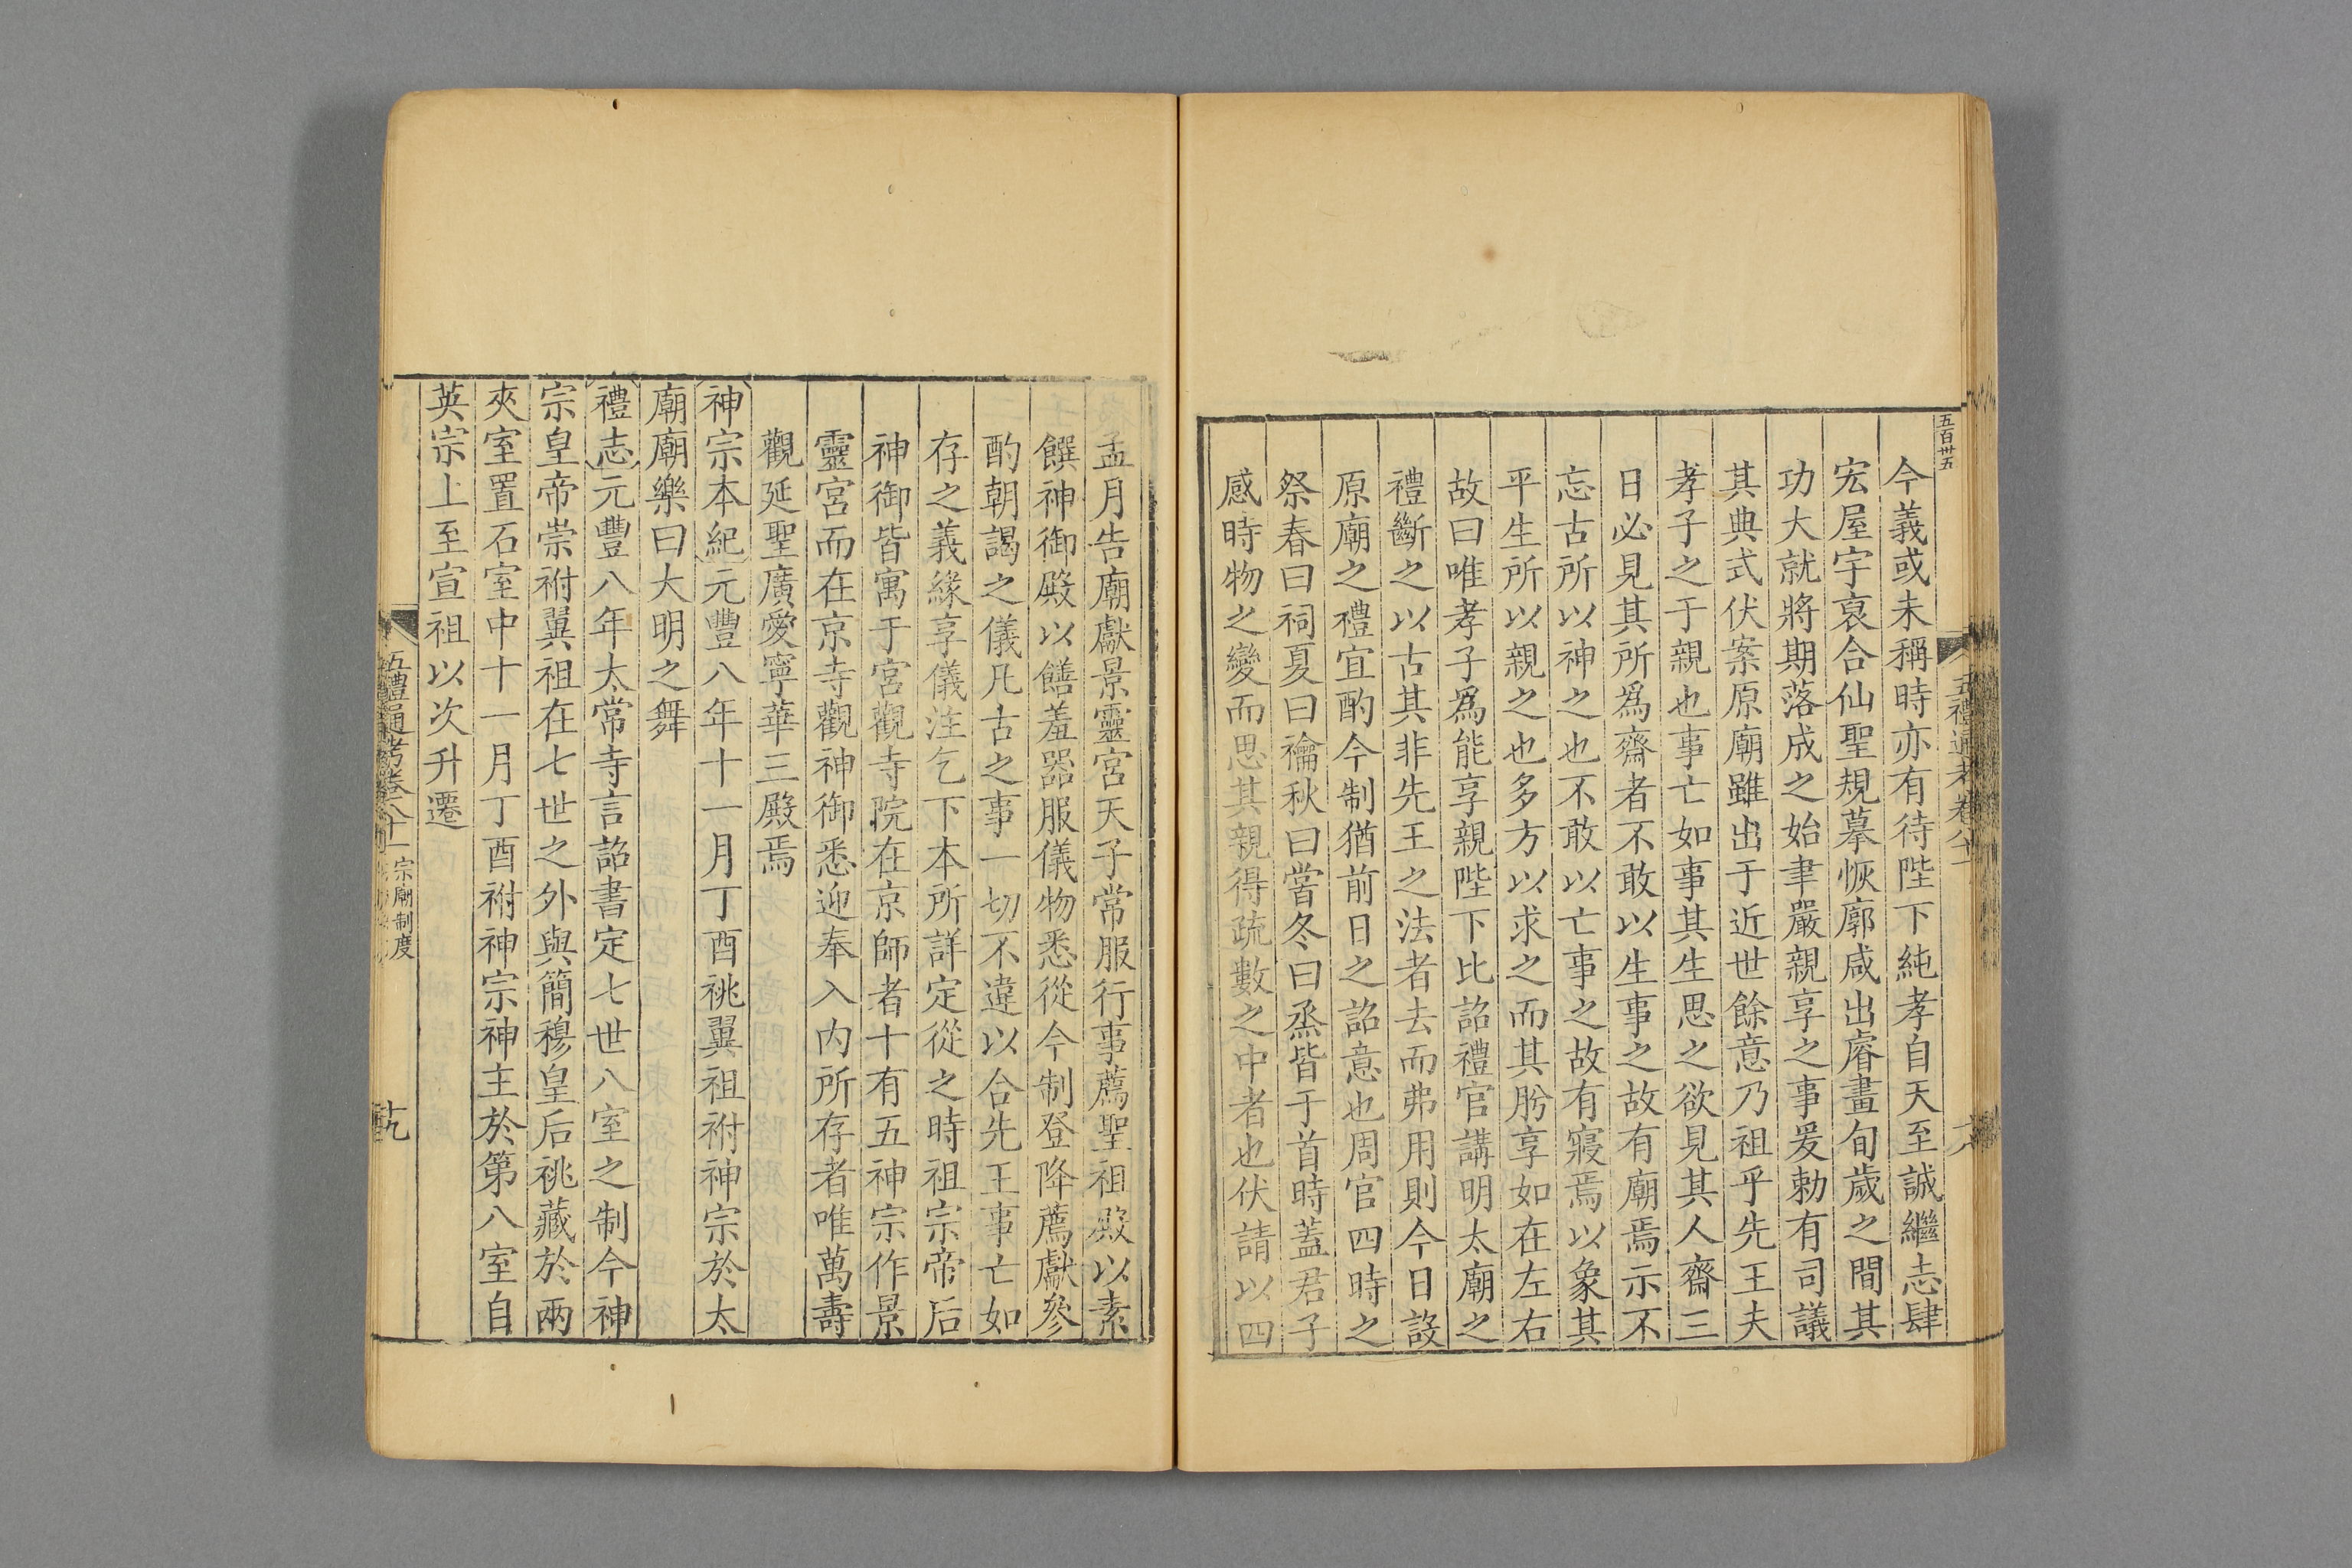 五百卅五
今義或未稱時亦有待陛下純孝自天至誠繼志肆
宏屋宇裒合仙聖規摹恢廓咸出睿畫旬歲之間其
功大就將期落成之始聿嚴親享之事爰勅有司議
其典式伏案原廟雖出于近世餘意乃祖乎先王夫
孝子之于親也事亡如事其生思之欲見其人齋三
日必見其所爲齋者不敢以生事之故有廟焉示不
忘古所以神之也不敢以亡事之故有寢焉以象其
平生所以親之也多方以求之而其肸享如在左右
故曰唯孝子爲能享親陛下比詔禮官講明太廟之
禮斷之以古其非先王之法者去而弗用則今日設
原廟之禮宜酌今制猶前日之詔意也周官四時之
祭春曰祠夏曰禴秋曰嘗冬曰烝皆于首時蓋君子
感時物之變而思其親得疏數之中者也伏請以四
孟月告廟獻景靈宮天子常服行事薦聖祖殿以素
饌神御殿以饍羞器服儀物悉從今制登降薦獻參
酌朝謁之儀凡古之事一切不違以合先王事亡如
存之義緣享儀注乞下本所詳定從之時祖宗帝后
神御皆寓于宮觀寺院在京師者十有五神宗作景
靈宮而在京寺觀神御悉迎奉入内所存者唯萬壽
觀延聖廣愛寧華三殿焉
神宗本紀元豐八年十一月丁酉祧翼祖祔神宗於太
廟廟樂曰大明之舞
禮志元豐八年太常寺言詔書定七世八室之制今神
宗皇帝崇祔翼祖在七世之外與簡穆皇后祧藏於兩
夾室置石室中十一月丁酉祔神宗神主於第八室自
英宗上至宣祖以次升遷
五禮通考卷八十一 宗廟制度 十九